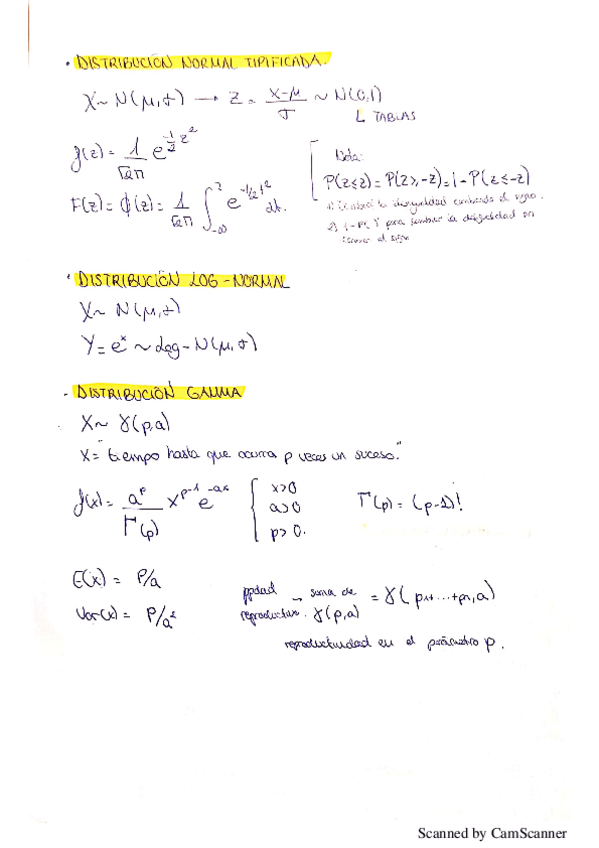 · DISTRIBUCIÓN NORMAL TIPIFICADA.
X ~ N(μ,σ) → Z = (X-μ)/σ ~ N(0,1)
↳ TABLAS
f(z) = 1/√2π e^(-1/2 z²)
F(z) = ϕ(z) = 1/√2π ∫_{-∞}^{z} e^(-1/2 t²) dt.
Nota:
P(Z≤z) = P(Z≥-z) = 1 - P(Z≤-z)
1) la desigualdad cambiando el signo.
2) 1-P( ) para cambiar la desigualdad sin
el signo
· DISTRIBUCIÓN LOG-NORMAL
X ~ N(μ,σ)
Y = e^x ~ log-N(μ,σ)
- DISTRIBUCIÓN GAMMA
X ~ γ(p,a)
X = "tiempo hasta que ocurra p veces un suceso."
f(x) = a^p/Γ(p) x^(p-1) e^(-ax) { x>0
a>0
p>0.
Γ(p) = (p-1)!
E(x) = p/a
Var(x) = p/a²
ppdad reproductiva. → suma de γ(p,a) = γ(p₁+...+pₙ,a)
reproductividad en el parámetro p.
Scanned by CamScanner